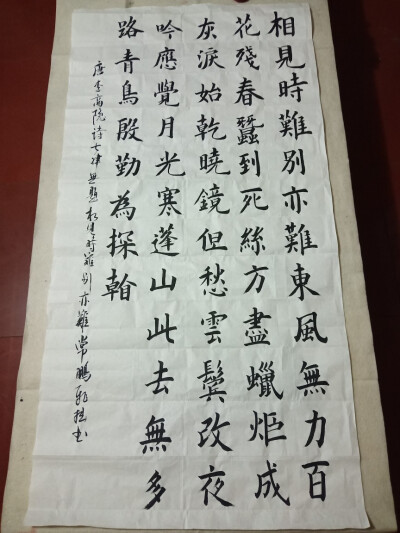 相見時難別亦難東風無力百
花殘春蠶到死絲方盡蠟炬成
灰淚始乾曉鏡但愁雲鬢改夜
吟應覺月光寒蓬山此去無多
路青鳥殷勤為探
唐李商隐诗七律無題相見时難别亦難常鵬书